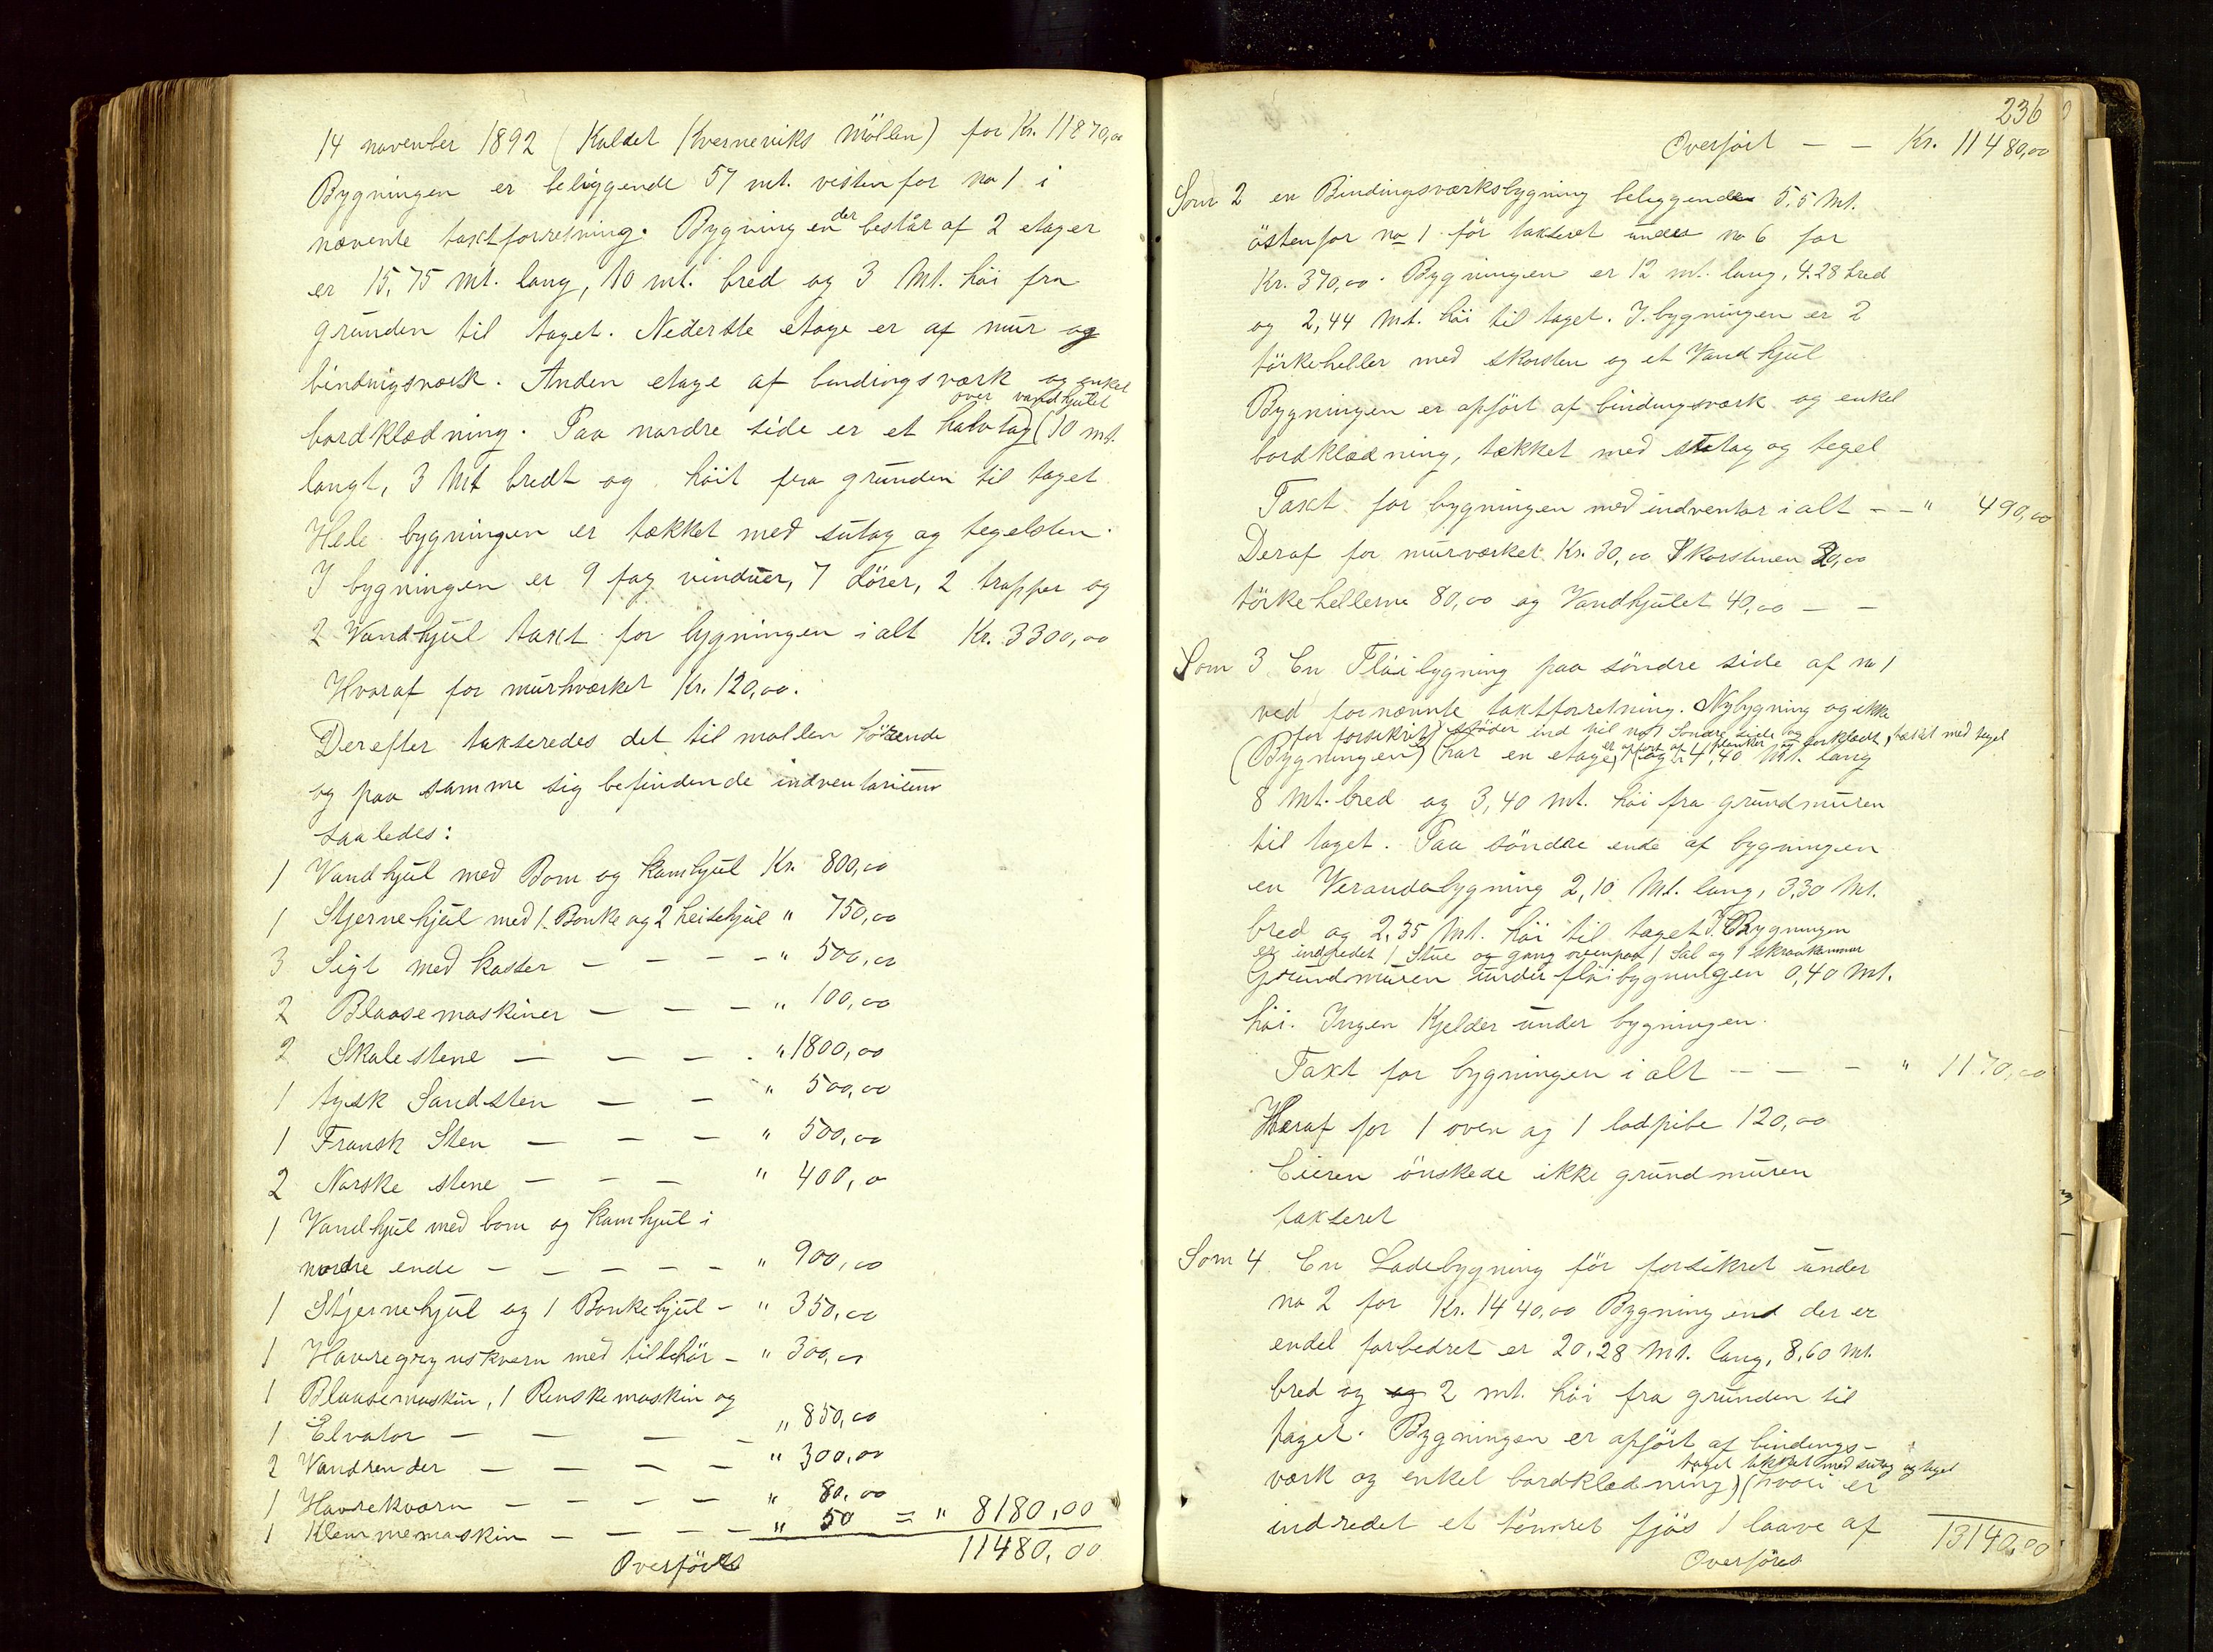 14 november 1892 (Kaldet Kverneviks Möllen) for Kr. 11870,00
Bygningen er beliggende 57 mt. vestenfor no 1 i
nævente taxtforretning. Bygningen der består af 2 etager
er 15,75 mt. lang, 10 mt. bred og 3 Mt. höi fra
grunden til taget. Nederste etage er af mur og
bindingsværk. Anden etage af bindingsværk og enkel
bordklædning. Paa nordre side er et halvtag (over vandhjulet 10 mt.
langt, 3 Mt bredt og höit fra grunden til taget
Hele bygningen er tækket med sutag og tegelsten.
I bygningen er 9 fag vinduer, 7 dörer, 2 trapper og
2 Vandhjul taxt for bygningen ialt Kr. 3300,00
Hvoraf for murhværket Kr. 120,00.
Derefter takseredes det til mollen hörende
og paa samme sig befindende indventarium
saaledes:
1 Vandhjul med Bom og Kamhjul Kr. 800,00
1 Stjernehjul med 1. Bonke og 2 heisehjul " 750,00
3 Sigt med kasser — — — — " 500,00
2 Blaasemaskiner — — — " 100,00
2 Skalestene — — — . " 1800,00
1 tysk Sandsten — — " 500,00
1 Fransk Sten — — — " 500,00
2 Norske stene — — — " 400,0
1 Vandhjul med bom og kamhjul i
nordre ende — — — — — " 900,00
1 Stjernehjul og 1 Bonkehjul — " 350,00
1 Havregrynskvern med tilbehör — " 300,00
1 Blaasemaskin, 1 Renskemaskin og
1 Elvator — — — — " 850,00
2 Vandrender — — — — " 300,00
1 Havrekværn — — — — " 80,00
1 Klemmemaskin — — — — " 50 = " 8180,00
11480,00
Overföres
236
Overfört — — Kr. 11480,00
Som 2 en Bindingsværksbygning beliggende 5,5 Mt.
östenfor no 1 för takseret under no 6 for
Kr. 370,00. Bygningen er 12 mt. lang, 4.28 bred
og 2,44 Mt. höi til taget. I bygningen er 2
törkeheller med skorsten og et Vandhjul
Bygningen er opfört af bindingsværk og enkel
bordklædning, tækket med sutag og tegel
Taxt for bygningen med indventar ialt — — " 490,00
Deraf for murværket Kr. 30,00 Skorstenen 20,00
törkehellerne 80,00 og Vandhjulet 40,00 — —
Som 3. En Flöibygning paa söndre side af no 1
ved fornævnte taxtforretning. Nybygning og ikke
för forsikrit) stöder ind til no 1 Söndre side og
er opfört af planker og borklædt, tækket med tegel
(Bygningen) (har en etage) (og er 4,40 Mt. lang
8 Mt. bred og 3,40 mt. höi fra grundmuren
til taget. Paa söndre ende af bygningen
en Verandabygning 2,10 Mt. lang, 3,30 Mt.
bred og 2,35 Mt. höi til taget I Bygningen
er indredet 1 Stue og gang ovenpaa 1 Sal og 1 skraakammer
Grundmuren under flöibygningen 0,40 Mt.
höi. Ingen Kjelder under bygningen.
Taxt for bygningen ialt — — — " 1170,00
Heraf for 1 oven og 1 lodpibe 120,00
Eieren önskede ikke grundmuren
takseret
Som 4. En Ladebygning för forsikret under
no 2 for Kr. 1440,00 Bygningend der er
endel forbedret er 20,28 Mt. lang, 8,60 Mt.
bred og og 2 mt. höi fra grunden til
taget. Bygningen er opfört af bindings-
taget tækket med sutag og tegel
værk og enkel bordklædning) (hvori er
indredet et tömret fjös 1 laave af
13140,00
Overföres